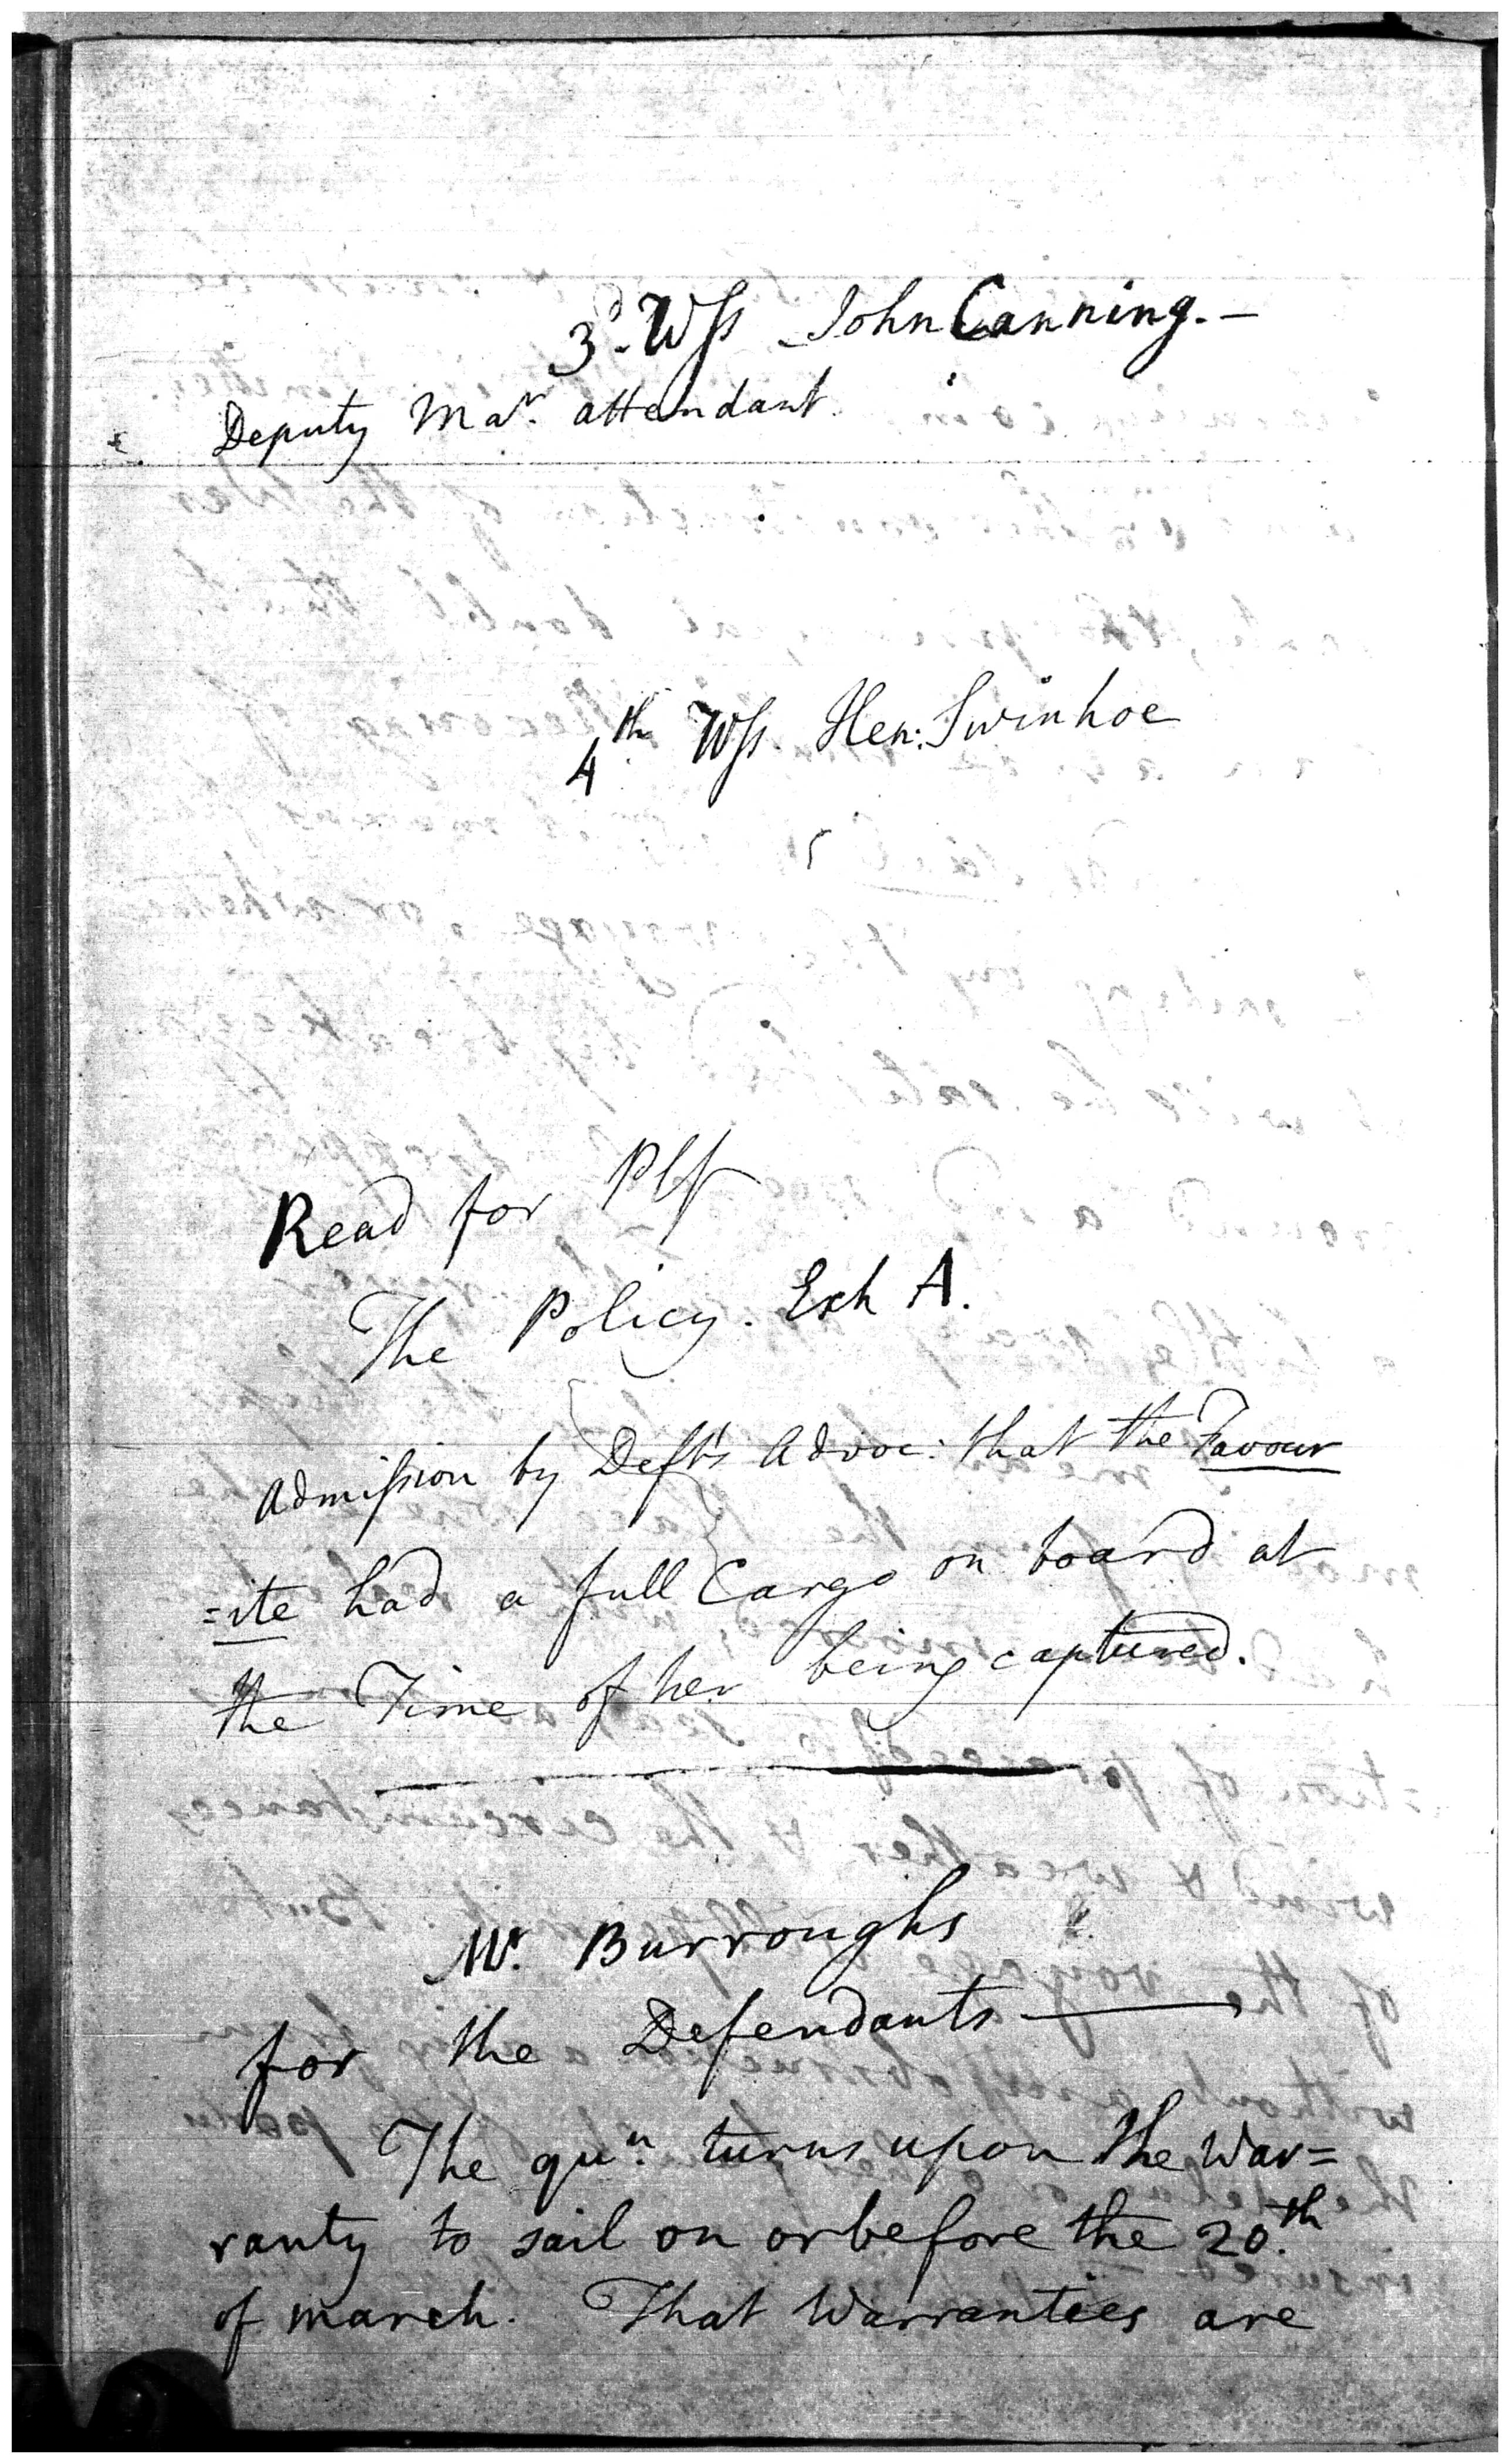 3d. Wss John Canning. —
Deputy Mar. attendant.
4th. Wss. Hen: Swinhoe
Read for Plf
The Policy. Exh A.
Admission by Deft's Advoc: that the Favour
=ite had a full Cargo on board at
the Time of her being captured.
Mr. Burroughs
for the Defendants —
The qun. turns upon the War=
ranty to sail on or before the 20.th
of march. That Warrantees are